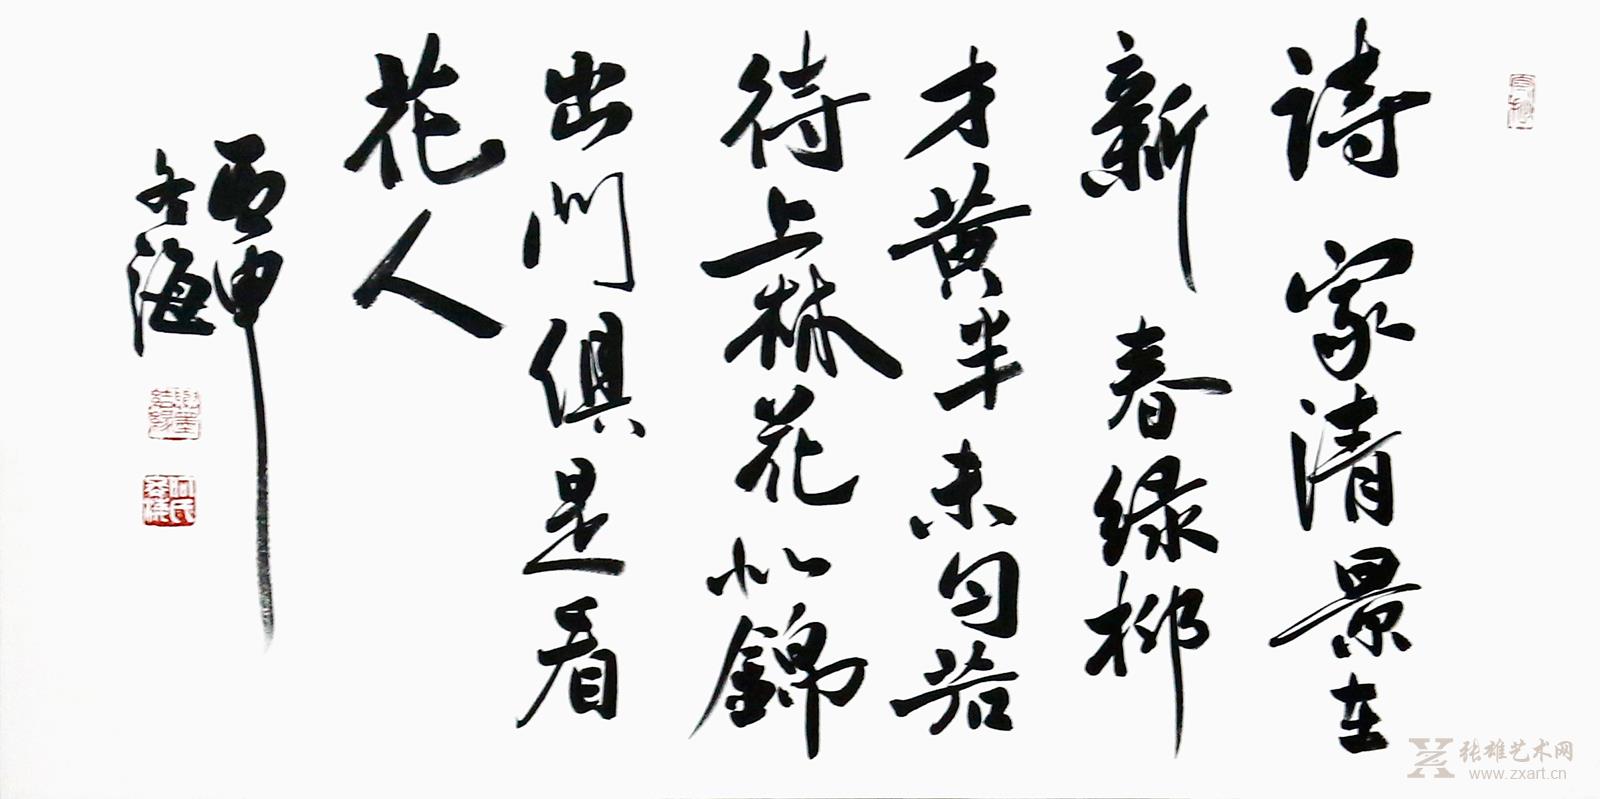 诗家清景在
新春绿柳
才黄半未匀若
待上林花似錦
出门俱是看
花人
丙申
海
张雄艺术网
www.zxart.cn